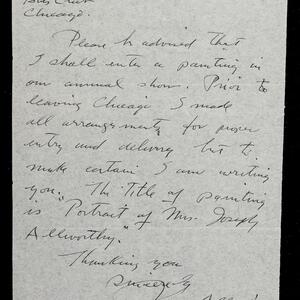 Chicago.
Please be advised that
I shall enter a painting in
our annual show. Prior to
leaving Chicago I made
all arrangements for proper
entry and delivery but to
make certain I am writing
you. "The Title of painting
is "Portrait of Mrs. Joseph
Allworthy."
Thanking you
Sincerely